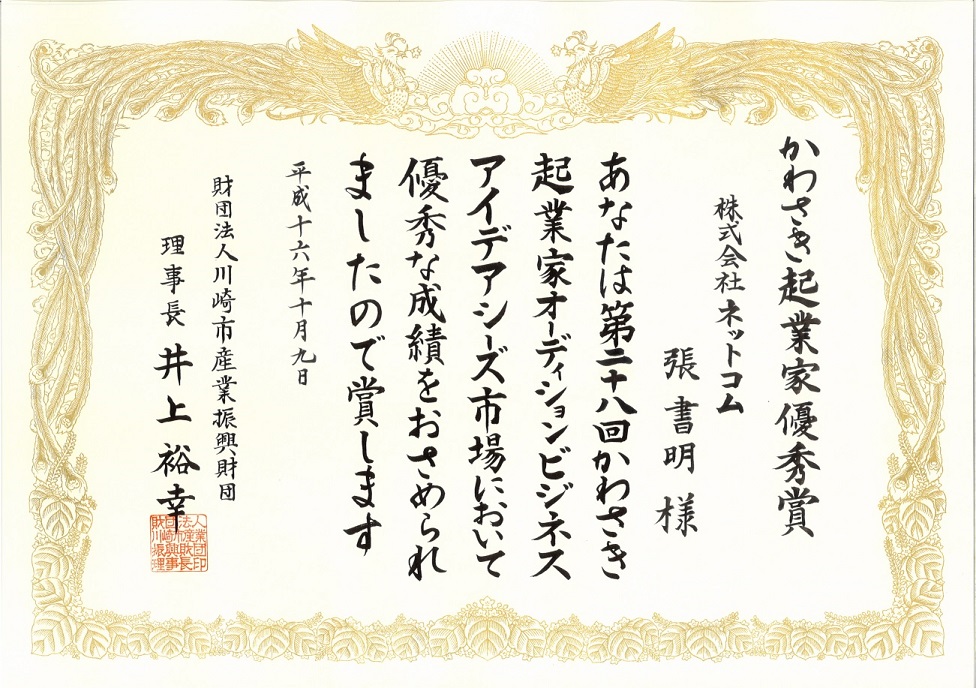 かわさき起業家優秀賞
株式会社 ネットコム
張書明様
あなたは第二十八回かわさき
起業家オーディションビジネス
アイデアシーズ市場において
優秀な成績をおさめられ
ましたので賞します
平成十六年十月九日
財団法人川崎市産業振興財団
理事長 井上裕幸
人業団印
法産財長
団崎興事
財川振理